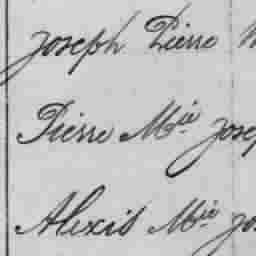 Joseph Pierre
Pierre Mie Josep
Alexis Mie Jos